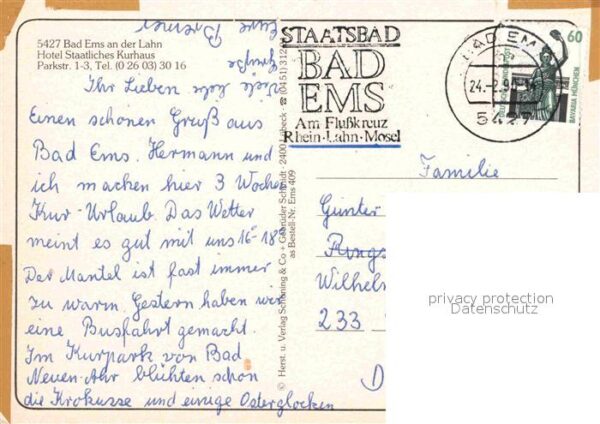 5427 Bad Ems an der Lahn
Hotel Staatliches Kurhaus
Parkstr. 1-3, Tel. (0 26 03) 30 16
Ihr Lieben
Einen schönen Gruß aus
Bad Ems. Hermann und
ich machen hier 3 Wochen
Kur-Urlaub. Das Wetter
meint es gut mit uns 16-18°
Der Mantel ist fast immer
zu warm. Gestern haben wir
eine Busfahrt gemacht.
Im Kurpark von Bad
Neuen-Ahr blühten schon
die Krokusse und einige Osterglocken
Viele liebe
Grüße
Eure
© Herst. u. Verlag Schöning & Co + Gebrüder Schmidt · 2400 Lübeck · ☎ (04 51) 3 12
as Bestell-Nr. Ems 409
STAATSBAD
BAD
EMS
Am Flußkreuz
Rhein-Lahn-Mosel
BAD EMS
24.-2.90
5427
60
DEUTSCHE BUNDESPOST
BAVARIA MÜNCHEN
Familie
Günter
Wilhelm
233
D
privacy protection
Datenschutz